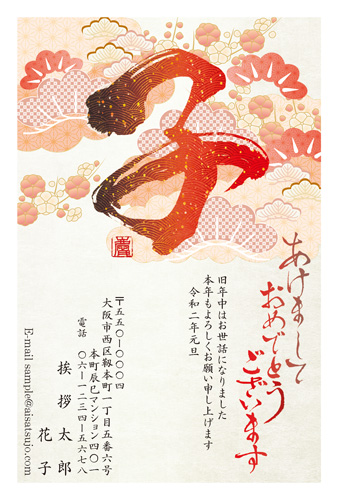 子
あけまして
おめでとう
ございます
旧年中はお世話になりました
本年もよろしくお願い申し上げます
令和二年元旦
〒五五〇-〇〇〇四
大阪市西区靱本町一丁目五番六号
本町辰巳マンション四〇一
電話 〇六-一二三四-五六七八
挨拶太郎
花子
E-mail sample@aisatsujo.com